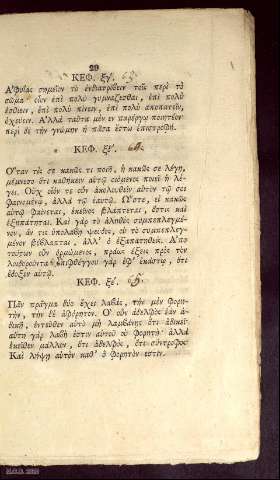 29
ΚΕΦ. ξγ΄. 63.
Ἀφυΐας σημεῖον τὸ ἐνδιατρίβειν τοῖς περὶ τὸ
σῶμα· οἷον ἐπὶ πολὺ γυμνάζεσθαι, ἐπὶ πολὺ
ἐσθίειν, ἐπὶ πολὺ πίνειν, ἐπὶ πολὺ ἀποπατεῖν,
ὀχεύειν. Ἀλλὰ ταῦτα μὲν ἐν παρέργῳ ποιητέον·
περὶ δὲ τὴν γνώμην ἡ πᾶσα ἔστω ἐπιστροφή.
ΚΕΦ. ξδ΄. 64.
Ὅταν τίς σε κακῶς τι ποιῇ, ἢ κακῶς σε λέγῃ,
μέμνησο ὅτι καθήκειν αὐτῷ οἰόμενος ποιεῖ ἢ λέ-
γει. Οὐχ οἷόν τε οὖν ἀκολουθεῖν αὐτὸν τῷ σοὶ
φαινομένῳ, ἀλλὰ τῷ ἑαυτῷ. Ὥστε, εἰ κακῶς
αὐτῷ φαίνεται, ἐκεῖνος βλάπτεται, ὅστις καὶ
ἐξηπάτηται. Καὶ γὰρ τὸ ἀληθὲς συμπεπλεγμέ-
νον, ἄν τις ὑπολάβῃ ψεῦδος, οὐ τὸ συμπεπλεγ-
μένον βέβλαπται, ἀλλ' ὁ ἐξαπατηθείς. Ἀπὸ
τούτων οὖν ὁρμώμενος, πράως ἕξεις πρὸς τὸν
λοιδοροῦντα· ἐπιφθέγγου γὰρ ἐφ' ἑκάστῳ, ὅτι
ἔδοξεν αὐτῷ.
ΚΕΦ. ξε΄. 65.
Πᾶν πρᾶγμα δύο ἔχει λαβάς, τὴν μὲν φορη-
τὴν, τὴν δὲ ἀφόρητον. Ὁ οὖν ἀδελφὸς ἐὰν ἀ-
δικῇ, ἐντεῦθεν αὐτὸ μὴ λάμβανε, ὅτι ἀδικεῖ·
αὕτη γὰρ λαβή ἐστιν αὐτοῦ οὐ φορητή· ἀλλὰ
ἐκεῖθεν μᾶλλον, ὅτι ἀδελφὸς, ὅτι σύντροφος·
Καὶ λήψῃ αὐτὸν καθ' ὃ φορητόν ἐστιν.